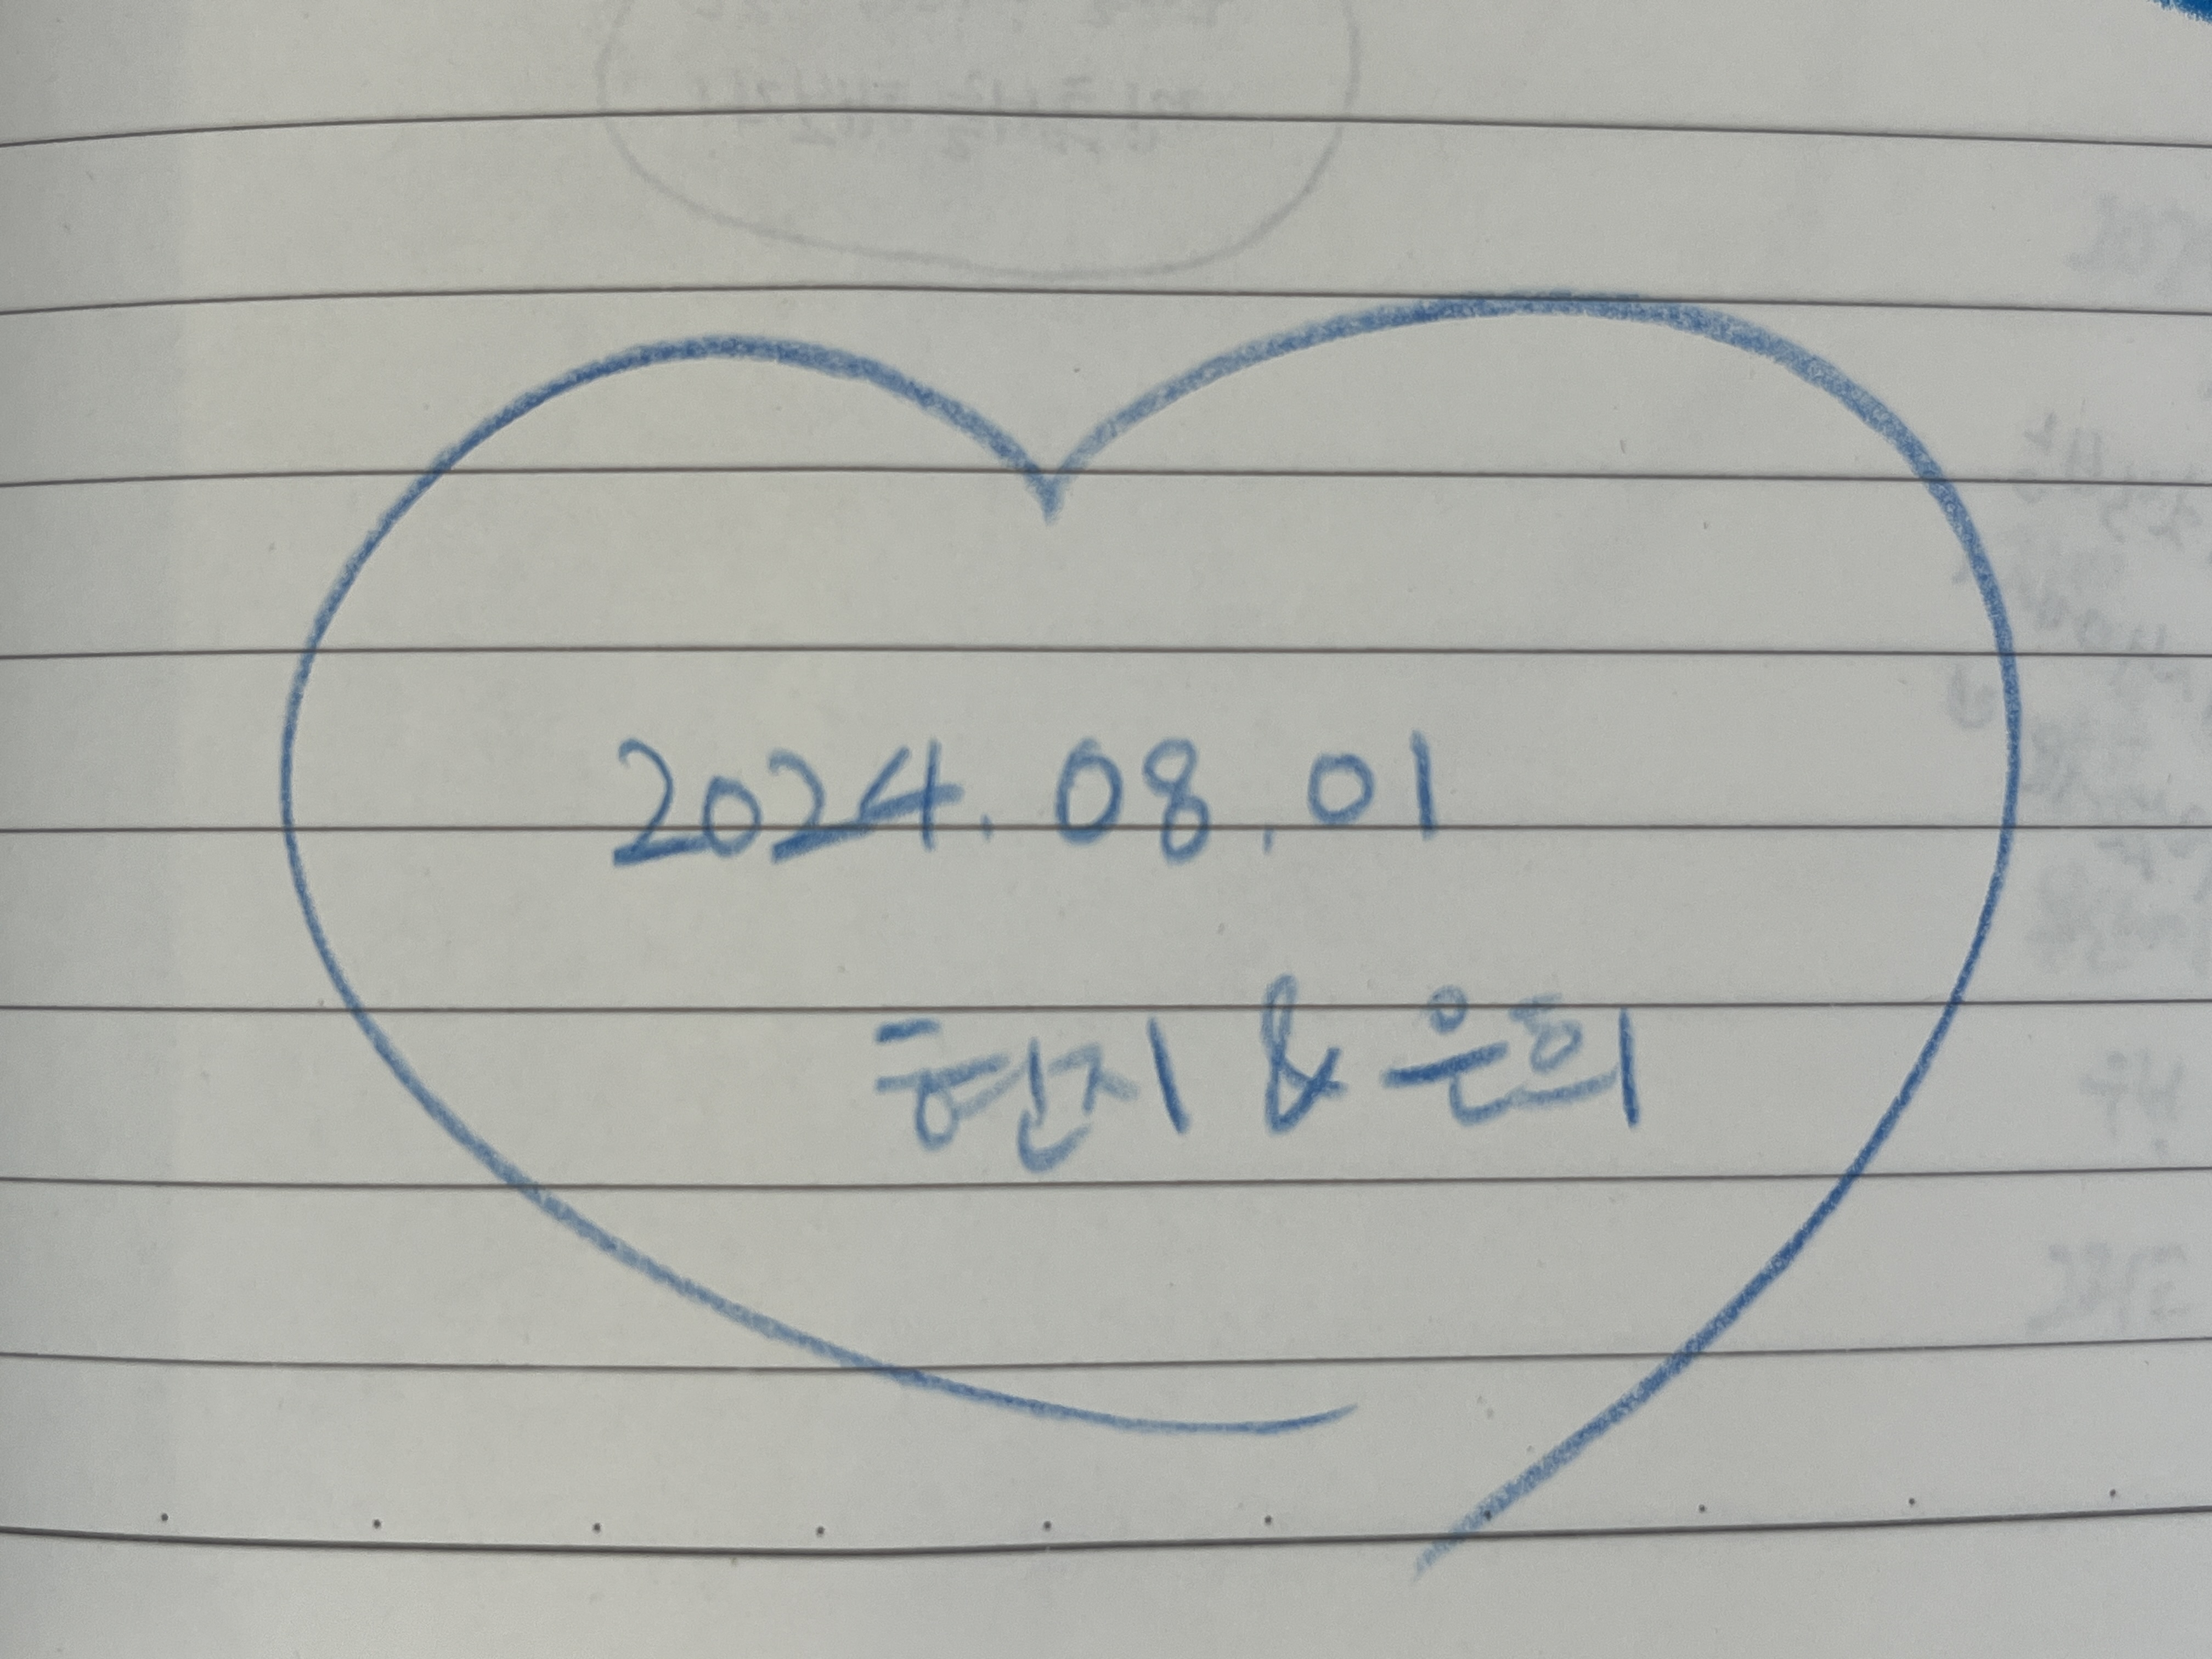 2024.08.01
현지 & 은희